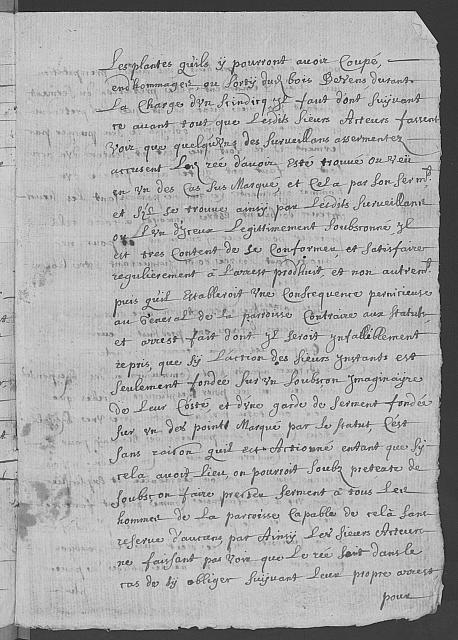 Les plantes quils ÿ pourront avoir Coupé,
endhommagé, ou Sorty du bois Bevens durant
La Charge d'vn Scindicq, jl faut dont suÿvant
ce avant tout que Lesdits Sieurs Acteurs fassent
Voir que quelqu'vns des Surveillans assermentez
accusent Le rée d'avoir Esté trouvé ou veü
en vn des Cas sus Marqué, et Cela par Son Serm.t
et s'il se trouve ainsÿ par Lesdits Surveillans
ou L'vn d'jceux Legittimement Soubsonné, jl
est tres Content de se Conformer, et satisfaire
regulierement à L'arrest produit, et non autrem.t
puis qu'il Establiroit Vne Consequence pernicieuse
au General de La paroisse Contraire aux Statuts,
et arrest fait dont jl seroit ynfalliblement
repris, que sÿ L'action des sieurs ynstants est
seulement fondée sur vn soubscon ymaginaÿre
de Leur Costé, et d'vne garde de serment fondée
sur vn des points Marqué par le statut, C'est
sans raison quil est Actionné entant que sÿ
cela avoit Lieu on pourroit soubz pretexte de
soubscon faire prester Serment à tous Les
hommes de La paroisse Capable de celà sans
reserve d'aucuns par Ainsÿ Les Sieurs Acteurs
ne faisant pas voir que Le rée soit dans le
cas de sÿ obliger suÿvant Leur propre arrest
pour